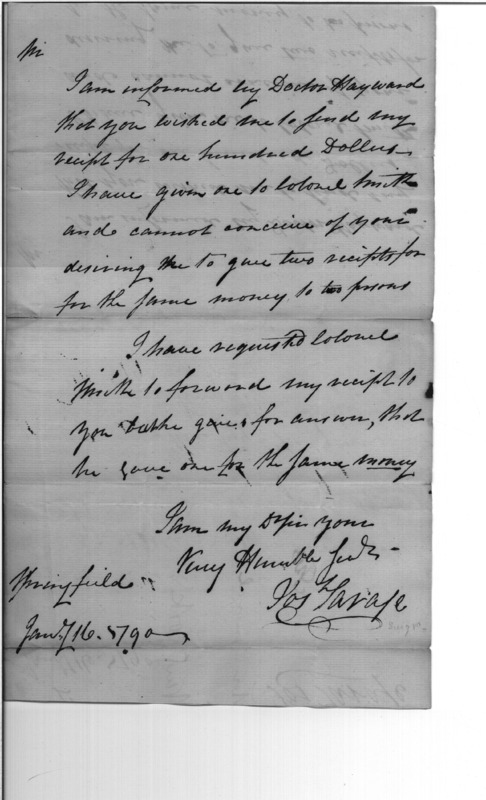 Sir
I am informed by Doctor Hayward
that you wished me to send my
recipt for one hundred Dollers
I have given one to Colonel Smith
and cannot conceive of your
desiring me to give two recipts for
for the same money to two persons
I have requested Colonel
Smith to forword my recipt to
you but he gives for answer, that
he gave one for the same money
I am my D Sir your
Very Humble Servt
Jos Savage
Springfield
Jany 16. 1790